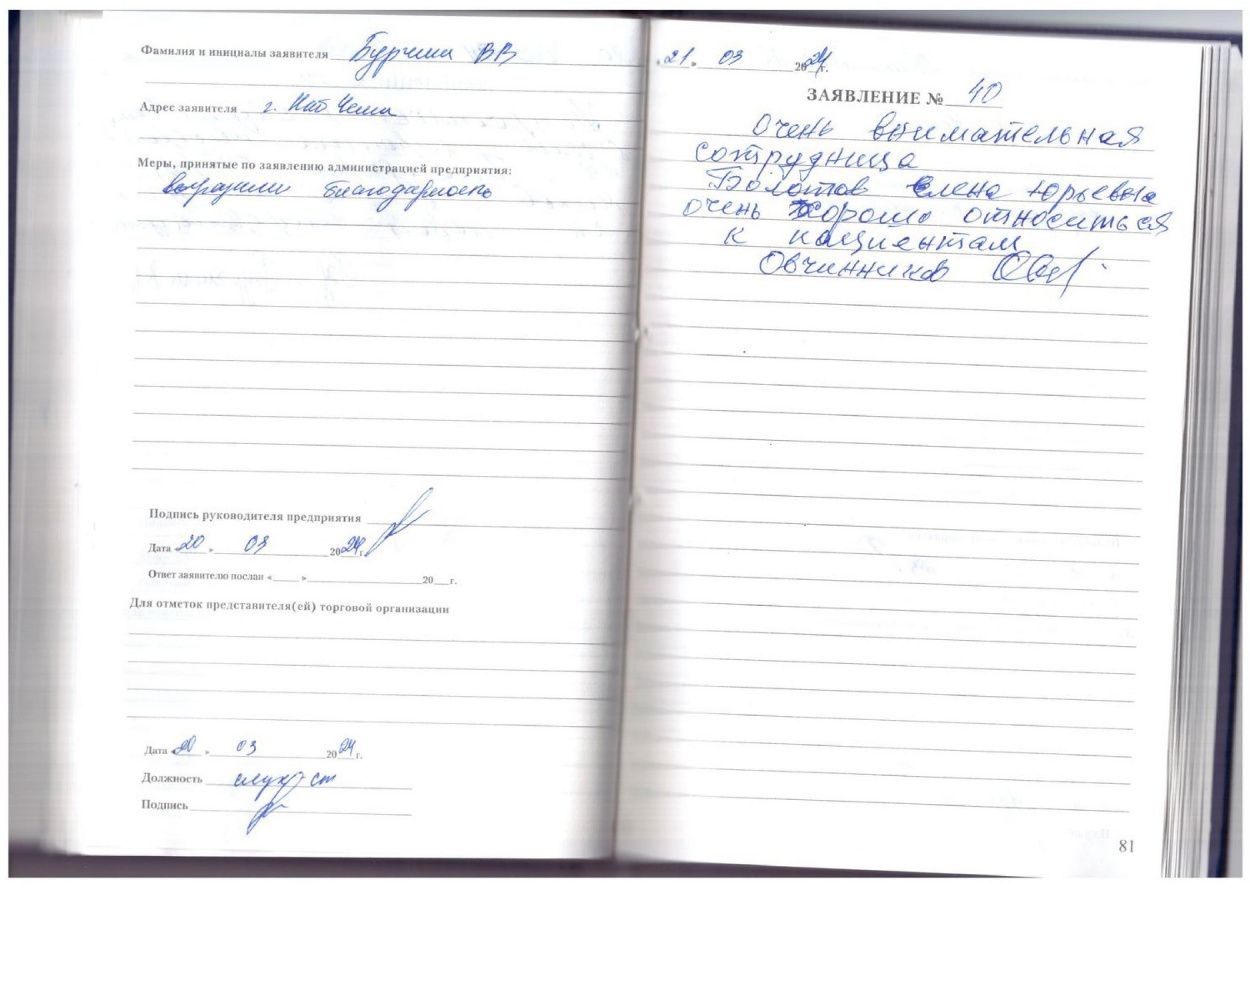 Фамилия и инициалы заявителя Бурчина ВВ
Адрес заявителя г. Наб Челны
Меры, принятые по заявлению администрацией предприятия:
выразили благодарность
Подпись руководителя предприятия
Дата «20» 03 2024 г.
Ответ заявителю послан «____» ____ 20__г.
Для отметок представителя(ей) торговой организации
Дата «20» 03 2024 г.
Должность
Подпись
«21» 03 2024 г.
ЗАЯВЛЕНИЕ № 40
Очень внимательная
сотрудница
Болотов Елена Юрьевна
очень хорошо относиться
к пациентам
Овчинников
81